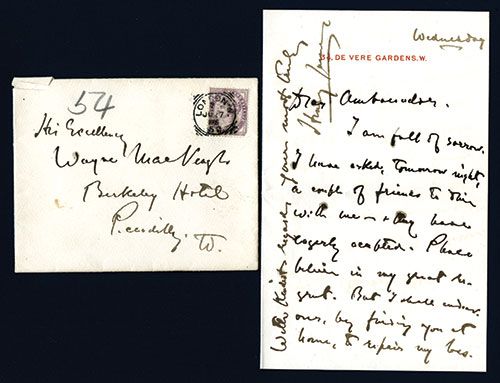 54
His Excellency
Wayne MacVeagh
Berkeley Hotel
Piccadilly. W.
LONDON. W.
JU 27
Wednesday
34, DE VERE GARDENS. W.
Dear Ambassador.
I am full of sorrow.
I have asked, tomorrow night,
a couple of friends to dine
with me — & they have
eagerly accepted. Please
believe in my great re-
gret. But I shall endeav-
our, by finding you at
home, to repair my loss.
With kindest regards yours most truly
Henry James